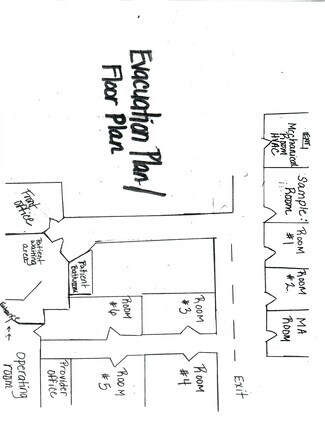 Evacuation Plan/
Floor Plan
Mechanical
Room
HVAC
Sample
Room
Room
#1
Room
#2
MA
Room
Exit
Room
#3
Room
#4
Room
#6
Room
#5
Patient
Bathroom
Provider
office
Front
office
Patient
waiting
area
Operating
room